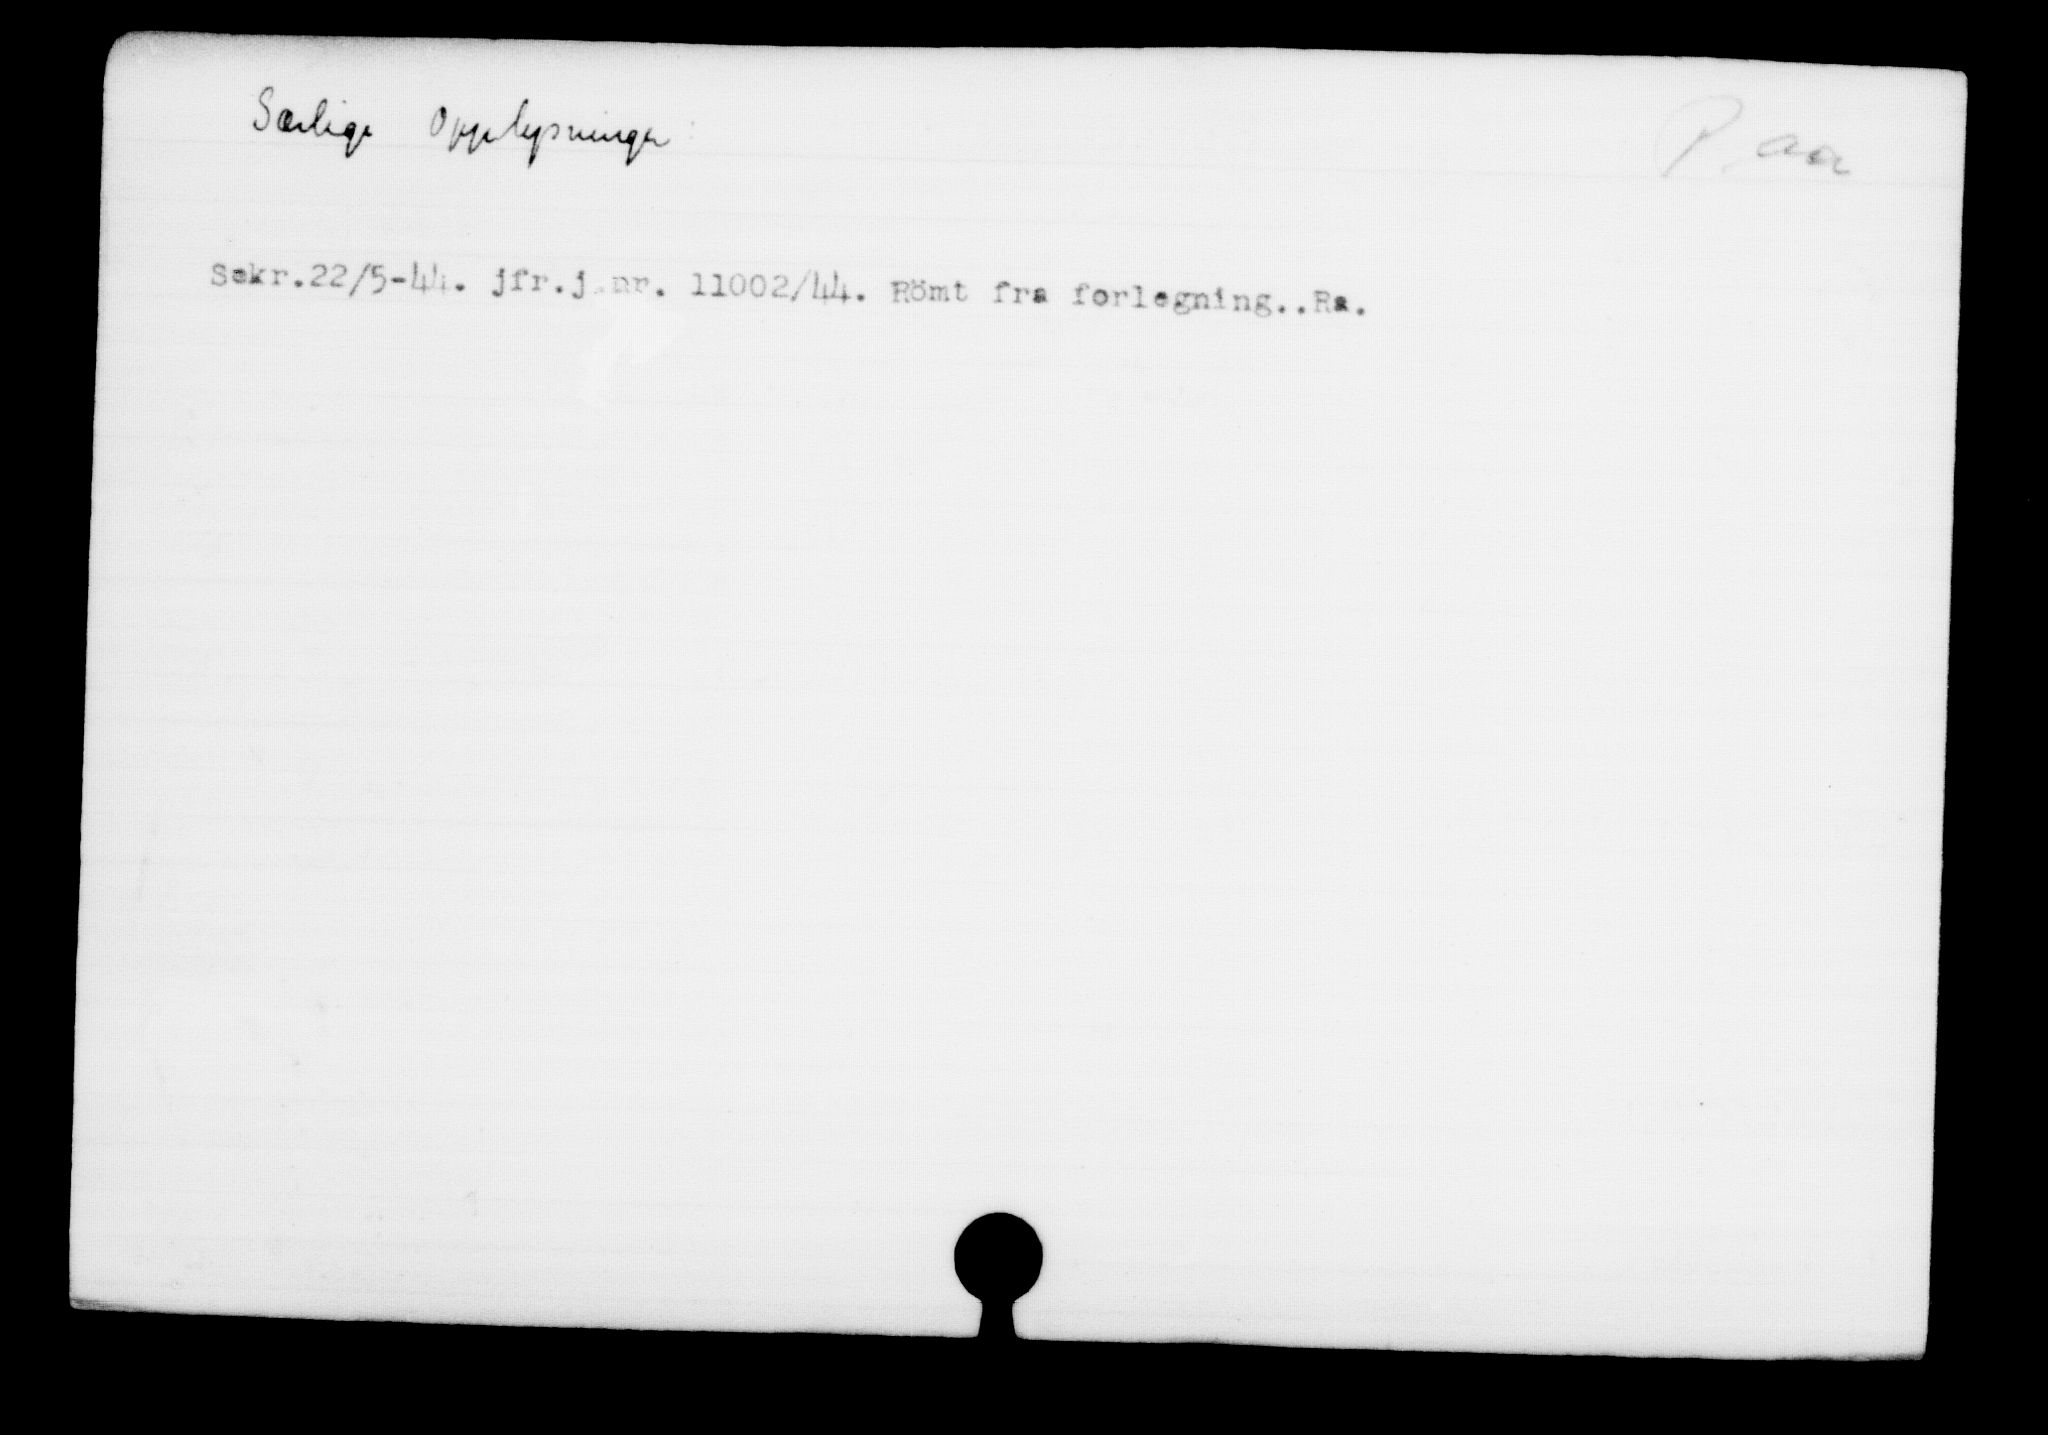 Særlige Opplysninger:
P. aa
Sekr.22/5-44. jfr.j.nr. 11002/44. Römt fra forlegning..Ra.